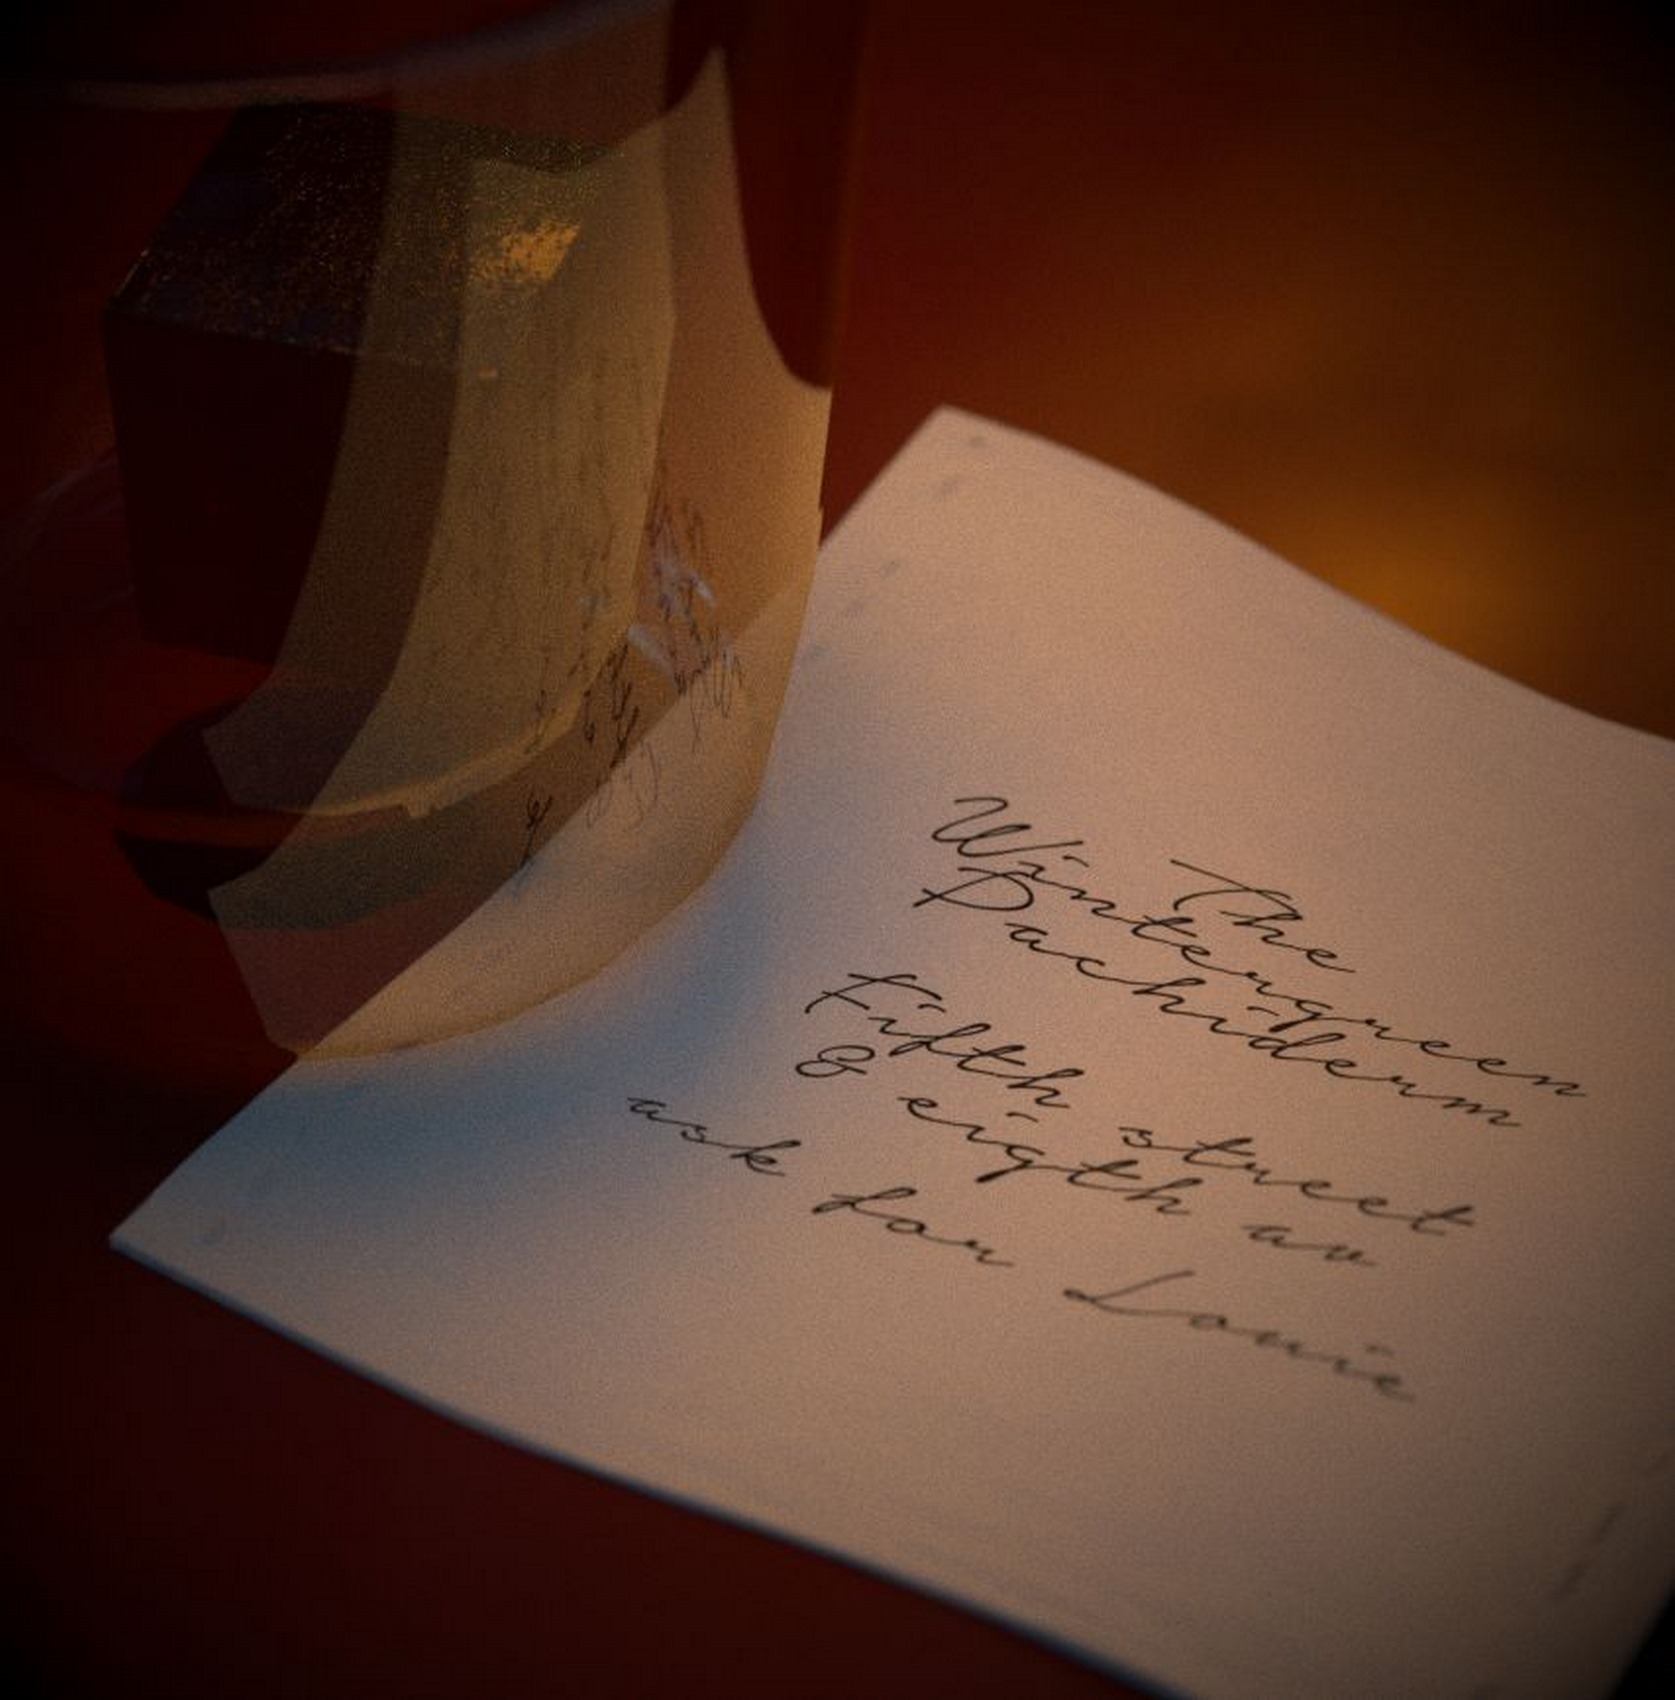 The
Wintergreen
Pachiderm
Fifth street
& eigth av
ask for Louie